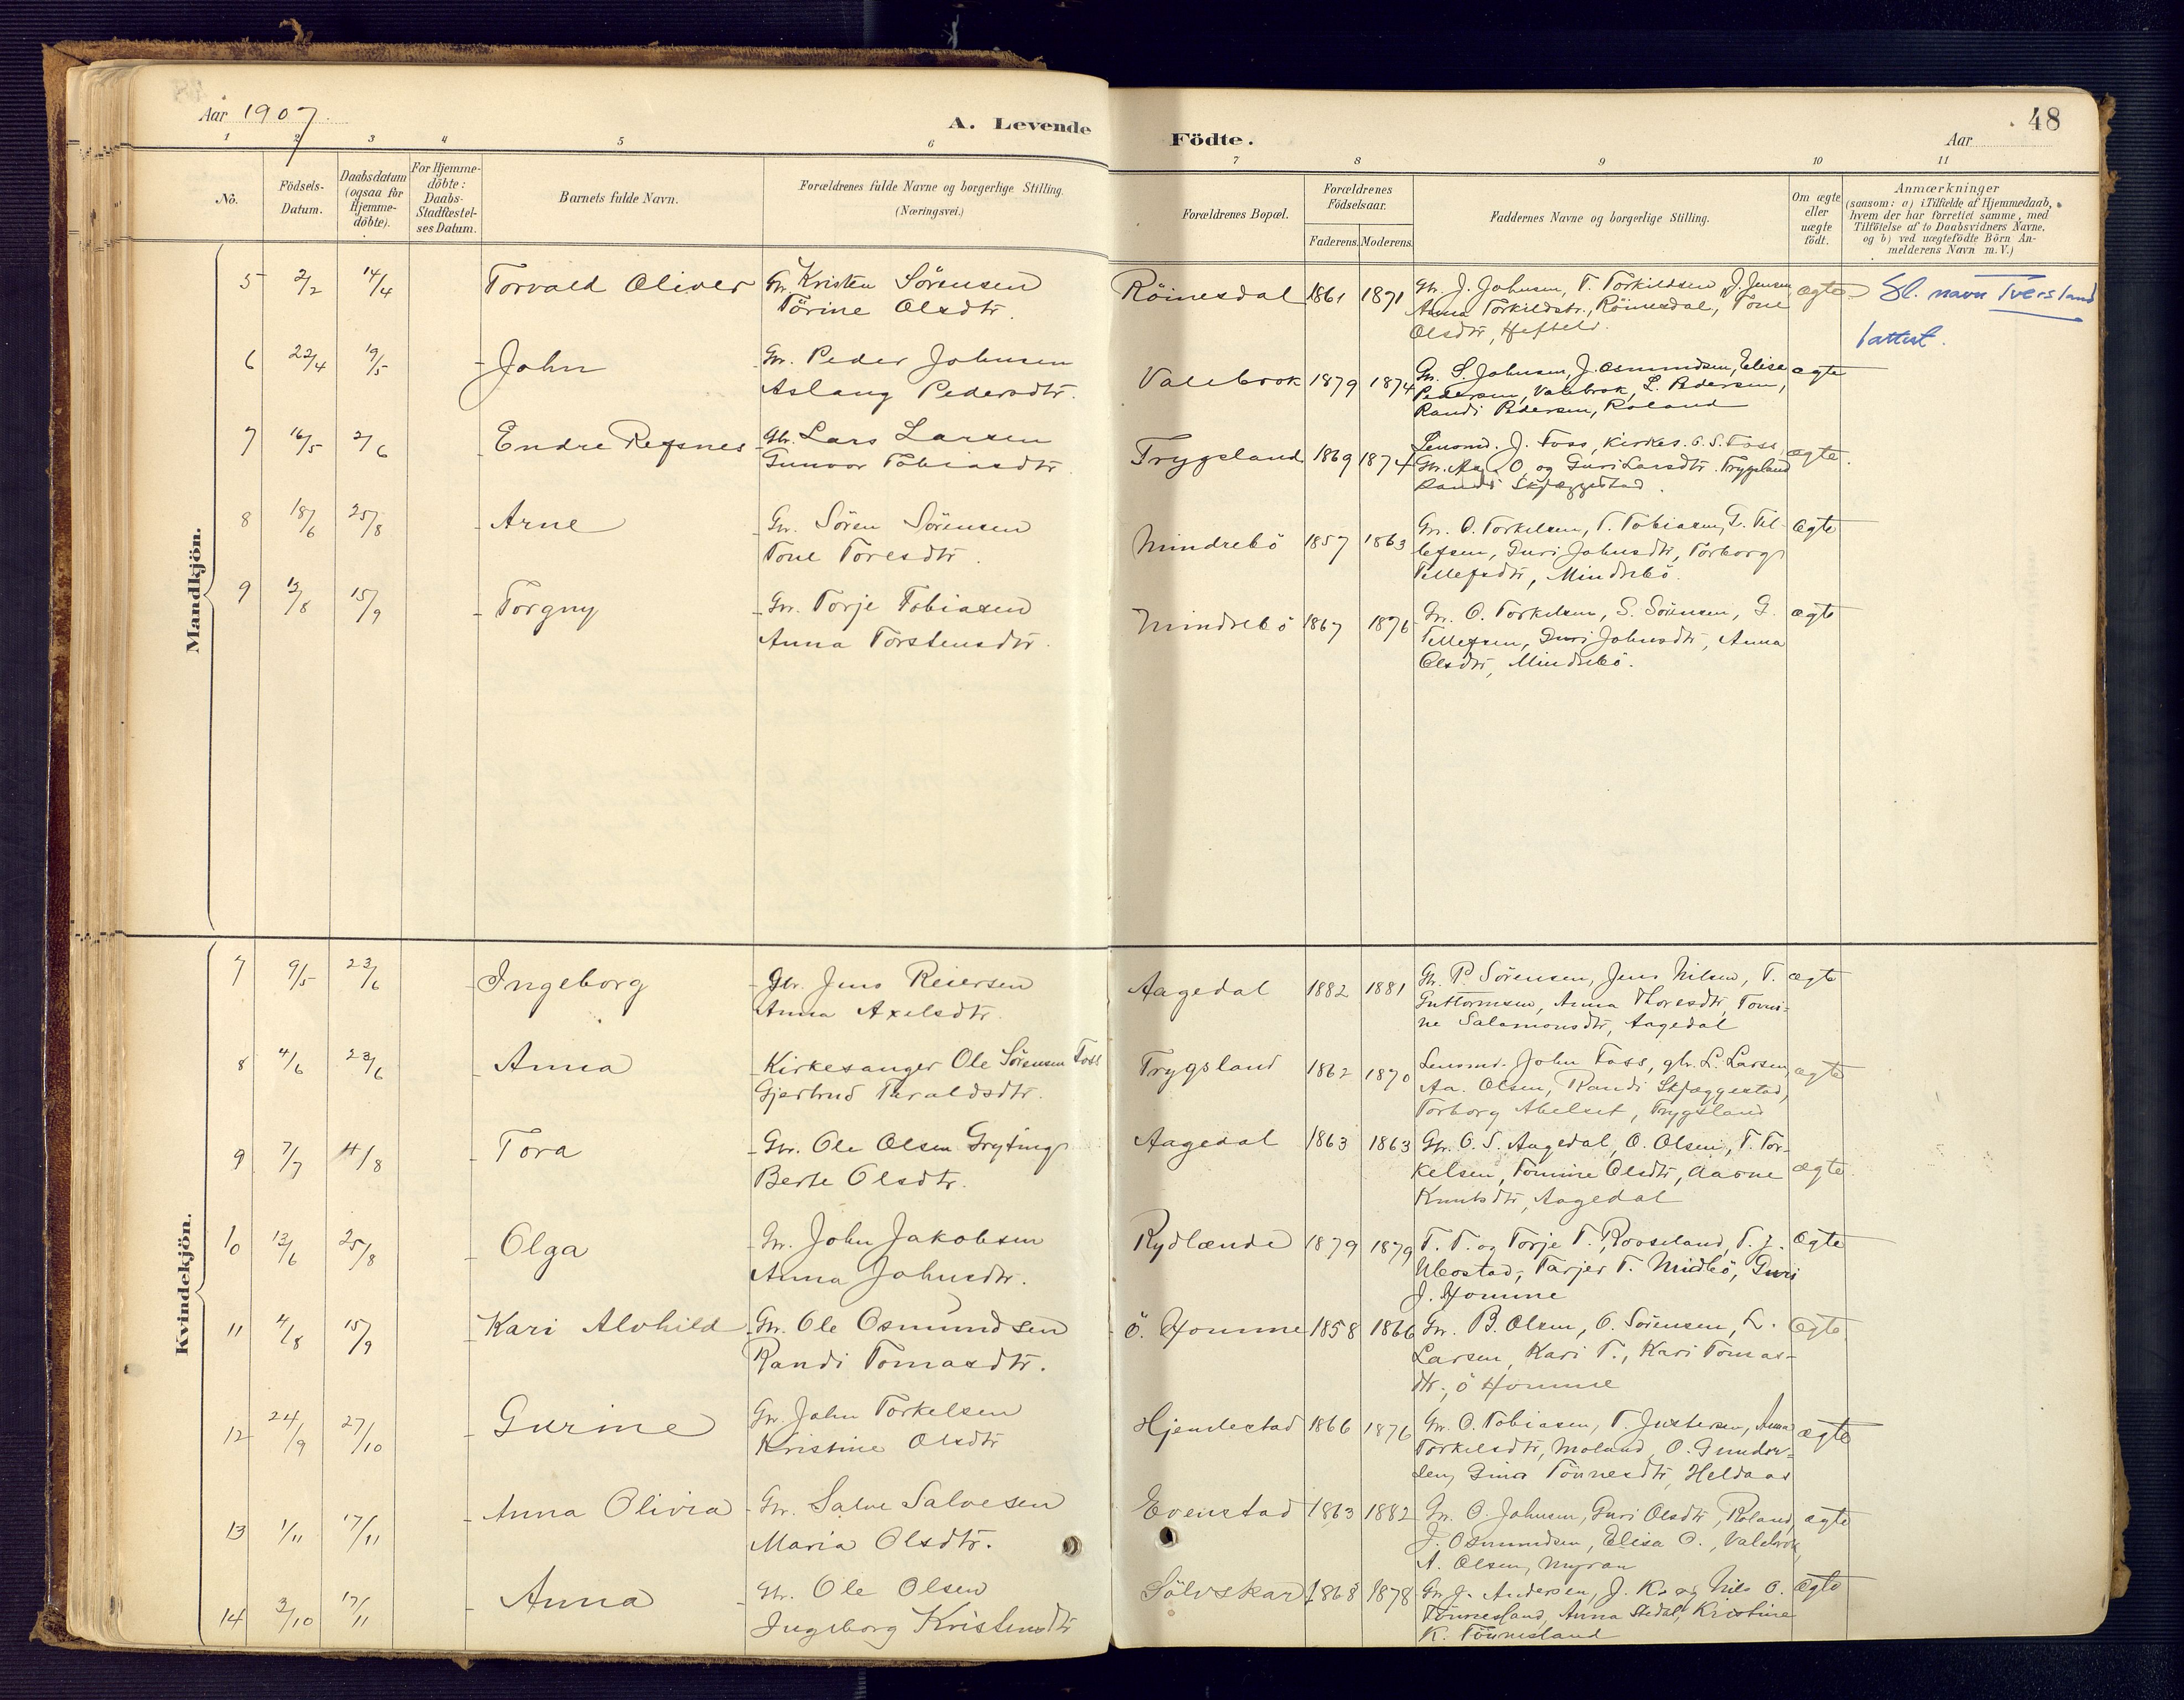 Aar 1907.
A. Levende
Födte.
Aar
48
1 2 3 4 5 6 7 8 9 10 11
No.
Födsels-Datum.
Daabsdatum (ogsaa for Hjemme-döbte).
For Hjemme-döbte: Daabs-Stadfæstel-ses Datum.
Barnets fulde Navn.
Forældrenes fulde Navne og borgerlige Stilling. (Næringsvei.)
Forældrenes Bopæl.
Forældrenes Födselsaar.
Faderens. Moderens.
Faddernes Navne og borgerlige Stilling.
Om ægte eller uægte födt.
Anmærkninger
(saasom: a) i Tilfælde af Hjemmedaab, hvem der har forrettet samme, med Tilföielse af to Daabsvidners Navne, og b) ved uægtefödte Börn An-melderens Navn m. V.)
Mandkjön.
5 2/2 14/4 Torvald Oliver Gr. Kristen Sörensen Röinesdal 1861 1871 Gr. J. Johnsen, T. Torkildsen, J. Jensen ægte Sl. navn Tversland
Törine Olsdtr. Anna Torkildstr., Röinesdal, Tone
Olsdtr, Hefteld. 1 attest.
6 22/4 19/5 John Gr. Peder Johnsen Valebrok 1879 1874 Gr. S. Johnsen, J. Osmundsen, Elise ægte
Aslaug Pedersdtr. Pedersen, Valebrok, L. Pedersen,
Randi Pedersen, Roland
7 16/5 2/6 Endre Refsnes Gbr. Lars Larsen Trygsland 1869 1874 Lensmd. J. Foss, Kirkes. O. S. Foss, ægte.
Gunvor Tobiasdtr. Gr. Aa. O. og Guri Larsdtr. Trygsland
Randi Skjæggestad.
8 18/6 25/8 Arne Gr. Sören Sörensen Mindrebö 1857 1863 Gr. O. Torkelsen, T. Tobiasen, G. Tel- ægte
Tone Toresdtr. lefsen, Guri Johnsdtr, Torborg
Tellefsdtr, Mindrebö.
9 13/8 15/9 Torgny Gr. Torje Tobiasen Mindrebö 1867 1876 Gr. O. Torkelsen, S. Sörensen, G. ægte
Anna Torstensdtr. Tellefsen, Guri Johnsdtr, Anna
Olsdtr, Mindrebö.
Kvindekjön.
7 9/5 23/6 Ingeborg Gbr. Jens Reiersen Aagedal 1882 1881 Gr. P. Sörensen, Jens Nilsen, T. ægte
Anna Axelsdtr. Guttormsen, Anna Thoresdtr, Tomi-
ne Salamonsdtr, Aagedal
8 4/6 23/6 Anna Kirkesanger Ole Sörensen Foss Trygsland 1862 1870 Lensmd. John Foss, gbr. L. Larsen, ægte
Gjertrud Taraldsdtr. Aa. Olsen, Randi Skjæggestad,
Torborg Abelset, Trygsland
9 7/7 4/8 Tora Gr. Ole Olsen Gryting Aagedal 1863 1863 Gr. O. S. Aagedal, O. Olsen, T. Tor-
Berte Olsdtr. kelsen, Tomine Olsdtr, Aavne ægte
Knutsdtr, Aagedal
10 13/6 25/8 Olga Gr. John Jakobsen Rydlænde 1879 1879 T. T. og Torje T. Rosseland, T. J. ægte
Anna Johnsdtr. Ubostad, Tarjer T. Midbö, Guri
J. Homme
11 4/8 15/9 Kari Alvhild Gr. Ole Osmundsen Ö. Homme 1858 1866 Gr. B. Olsen, O. Sörensen, L. ægte
Randi Tomasdtr. Larsen, Kari T., Kari Tomas-
dtr., ö Homme
12 24/9 27/10 Gurine Gr. John Torkelsen Hjendestad 1866 1876 Gr. O. Tobiasen, T. Justersen, Anna ægte
Kristine Olsdtr Torkelsdtr, Moland, O. Gunder-
sen, Gina Tönnesdtr, Heldaas
13 1/11 17/11 Anna Olivia Gr. Salve Salvesen Evenstad 1863 1882 Gr. O. Johnsen, Guri Olsdtr, Roland, ægte
Maria Olsdtr. J. Osmundsen, Elisa O., Valebrok,
A. Olsen, Myran
14 3/10 17/11 Anna Gr. Ole Olsen Sölvskar 1868 1878 Gr. J. Andersen, J. K. og Nils O. ægte
Ingeborg Kristensdtr Tönnesland, Anna Stedal, Kristine
K. Tönnesland